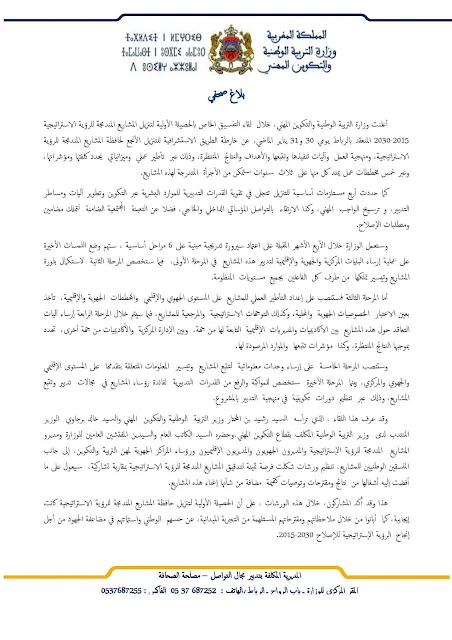 المملكة المغربية
وزارة التربية الوطنية
والتكوين المهني
بلاغ صحفي
أعلنت وزارة التربية الوطنية والتكوين المهني، خلال لقاء التنسيق الخاص بالحصيلة الأولية لتنزيل المشاريع المندمجة للرؤية الاستراتيجية
2015-2030 المنعقد بالرباط يومي 30 و31 يناير الماضي، عن خارطة الطريق الاستشرافية للتنزيل الأنجع لحافظة المشاريع المندمجة للرؤية
الاستراتيجية، ومنهجية العمل وآليات تنفيذها وتتبعها والأهداف والنتائج المنتظرة، وذلك عبر تأطير عملي وميزانياتي يحدد كلفتها ومؤشراتها،
وعبر خمس محطات عمل يمتد كل منها على ثلاث سنوات ستمكن من الأجرأة المتدرجة لهذه المشاريع.
كما حددت أربع مستلزمات أساسية للتنزيل تتجلى في تقوية القدرات التدبيرية للموارد البشرية عبر التكوين وتطوير آليات ومساطر
التدبير، و ترسيخ الواجب المهني، وكذا الارتقاء بالتواصل المؤسساتي الداخلي والخارجي، فضلا عن التعبئة المجتمعية الضامنة لتملك مضامين
ومتطلبات الإصلاح.
وستعمل الوزارة خلال الأربع الأشهر المقبلة على اعتماد سيرورة تدريجية مبنية على 6 مراحل أساسية ، ستهم وضع اللمسات الأخيرة
على عملية إرساء البنيات المركزية والجهوية والإقليمية لتدبير هذه المشاريع في المرحلة الأولى، فيما ستخصص المرحلة الثانية لاستكمال بلورة
المشاريع وتيسير تملكها من طرف كل الفاعلين بجميع مستويات المنظومة.
أما المرحلة الثالثة فستنصب على إعداد التأطير العملي للمشاريع على المستوى الجهوي والإقليمي والمخططات الجهوية والإقليمية، تأخذ
بعين الاعتبار الخصوصيات الجهوية والمحلية، وكذلك التوجهات الاستراتيجية والمرجعية للمشاريع، فيما سيتم خلال المرحلة الرابعة إرساء آليات
التعاقد حول هذه المشاريع بين الأكاديميات والمديريات الإقليمية التابعة لها من جهة، وبين الإدارة المركزية والأكاديميات من جهة أخرى، تحدد
بموجبها النتائج المنتظرة، وكذا مؤشرات تتبعها والموارد المرصودة لها.
وستنصب المرحلة الخامسة على إرساء وحدات معلوماتية لتتبع المشاريع وتيسير المعلومات المتعلقة بتقدمها على المستوى الإقليمي
والجهوي والمركزي، بينما المرحلة الأخيرة ستخصص للمواكبة والرفع من القدرات التدبيرية لفائدة رؤساء المشاريع في مجالات تدبير وتتبع
المشاريع، وذلك عبر تنظيم دورات تكوينية في منهجية التدبير بالمشروع.
وقد عرف هذا اللقاء ، الذي ترأسه السيد رشيد بن المختار وزير التربية الوطنية والتكوين المهني والسيد خالد برجاوي الوزير
المنتدب لدى وزير التربية الوطنية المكلف بقطاع التكوين المهني، وحضره السيد الكاتب العام والسيدين المفتشين العامين للوزارة ومديرو
المشاريع المندمجة للرؤية الإستراتيجية والمديرون الجهويون والمديريون الإقليميون ورؤساء المراكز الجهوية لمهن التربية والتكوين، إلى جانب
المنسقين الوطنيين للمشاريع، تنظيم ورشات شكلت فرصة ثمينة لتدقيق المشاريع المندمجة للرؤية الاستراتيجية بمقاربة تشاركية، سيعول على ما
أفضت إليه أشغالها من نتائج ومقترحات وتوصيات كقيمة مضافة من شأنها إغناء هذه المشاريع.
هذا وقد أكد المشاركون، خلال هذه الورشات ، على أن الحصيلة الأولية لتنزيل حافظة المشاريع المندمجة للرؤية الاستراتيجية كانت
إيجابية، كما أبانوا من خلال ملاحظاتهم ومقترحاتهم المستلهمة من التجربة الميدانية، عن حسهم الوطني واستماتتهم في مضاعفة الجهود من أجل
إنجاح الرؤية الإستراتيجية للإصلاح 2015-2030.
المديرية المكلفة بتدبير مجال التواصل – مصلحة الصحافة
المقر المركزي للوزارة ـ باب الرواح ـ الرباط/الهاتف : 687252 37 05 الفاكس : 0537687255